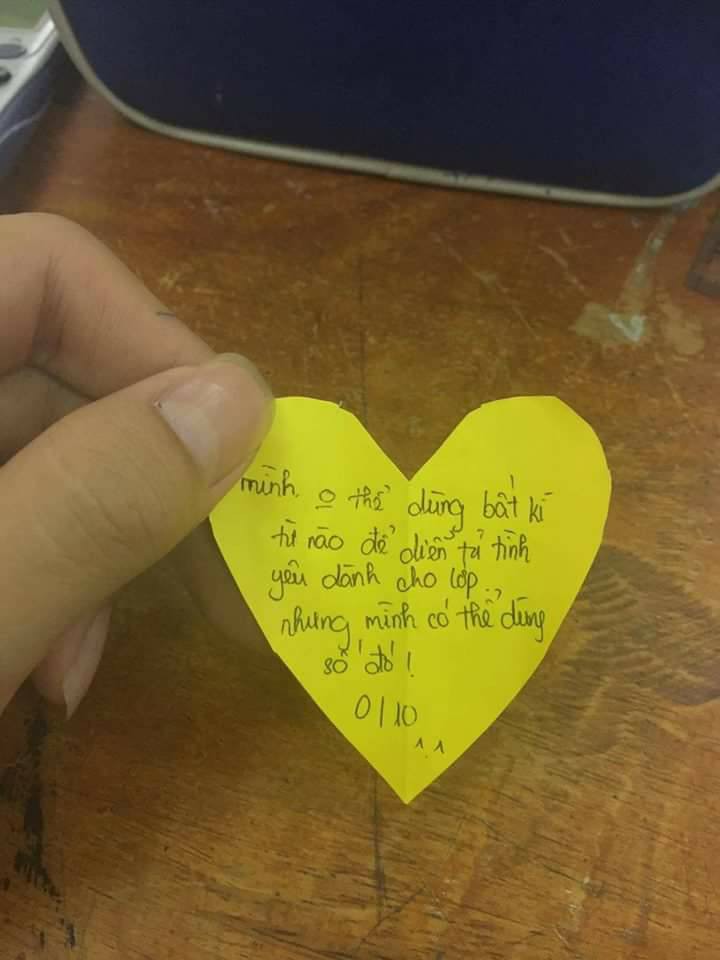 mình o thể dùng bất kì
từ nào để diễn tả tình
yêu dành cho lớp
nhưng mình có thể dùng
số đó!
0/10
^.^